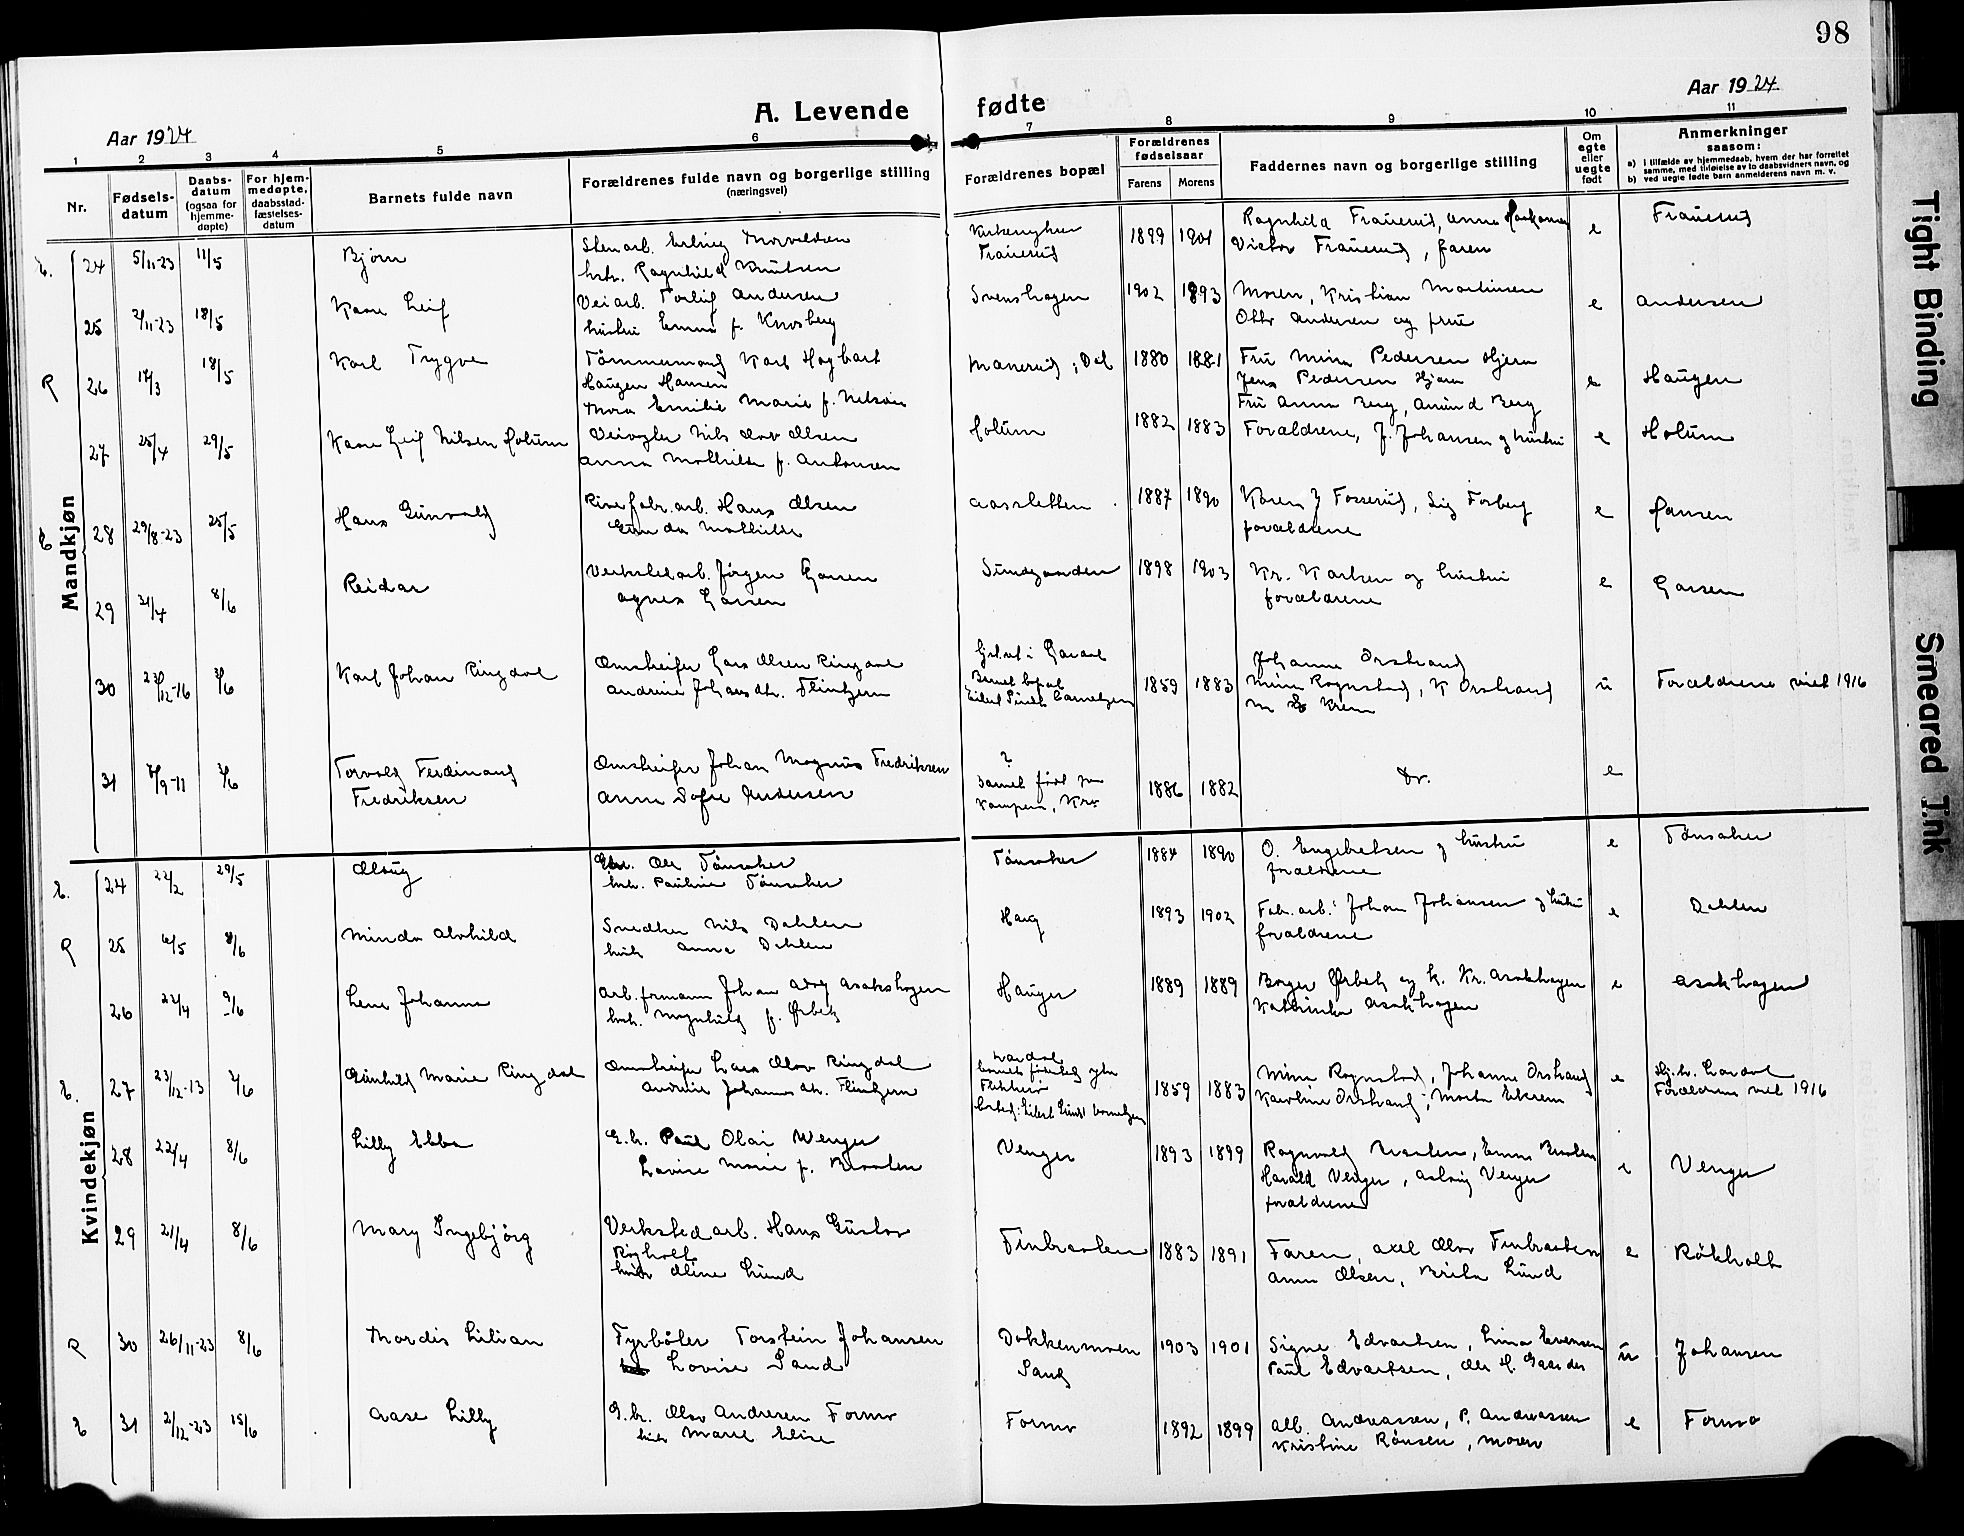 98
Aar 1924
A. Levende fødte
Aar 1924
1 2 3 4 5 6 7 8 9 10 11
Nr.
Fødsels-
datum
Daabs-
datum
(ogsaa for
hjemme-
døpte)
For hjem-
medøpte,
daabsstad-
fæstelses-
datum
Barnets fulde navn
Forældrenes fulde navn og borgerlige stilling
(næringsvei)
Forældrenes bopæl
Forældrenes
fødselsaar
Farens Morens
Faddernes navn og borgerlige stilling
Om
egte
eller
uegte
født
Anmerkninger
saasom:
a) i tilfælde av hjemmedaab, hvem der har forrettet
samme, med tilføielse av to daabsvidners navn, og
b) ved uegte fødte barn anmelderens navn m. v.
Mandkjøn
24 5/11-23 11/5 Bjørn
Stenarb. Erling Thorvaldsen
hstr. Ragnhild Knutsen
Frauerud
1899 1901
Ragnhild Frauerud, Anna
Victor Frauerud, faren
e Frauerud
25 2/11-23 18/5 Kaare Leif
Veiarb. Torleif Andersen
hustru Emma f. Knosberg
Svenshagen
1902 1893
Moren, Kristian Martinsen
Otto Andersen og frue
e Andersen
26 17/3 18/5 Karl Trygve
Tømmermand Karl Hagbart
Haugen Hansen
Thora Emilie Marie f. Nelson
Manerud, Dal
1880 1881
Fru Mina Pedersen Hjern
Jens Pedersen Hjern
Fru Anna Berg, Amund Berg
e Haugen
27 25/4 29/5 Kaare Leif Nilsen Holum
Veivogter Nils Olav Olsen
Anna Mathilde f. Antonsen
Holum
1882 1883
Forældrene, J. Johansen og hustru
e Holum
28 29/8-23 25/5 Hans Gunvald
fabr. arb. Hans Olsen
Gunda Mathilde
Aassletten
1887 1890
Karen Fosserud, Sig Forberg
forældrene
e Hansen
29 31/4 8/6 Reidar
Verkstedarb. Jørgen Garsen
Agnes Garsen
Sundzanden
1898 1903
Kr. Karlsen og hustru
forældrene
e Garsen
30 12-16 /6 Karl Johan Ringdal
Omstreifer Lars Olsen Ringdal
Andrine Johansdtr. Flintzen
Barnet bopæl
Eilert Sundt
1859 1883
Johanne Orstrand
Mina Rognstad, K Orstrand
M Krem
u Forældrene viet 1916
31 /9-11 /6 Torvald Ferdinand
Fredriksen
Omstreifer Johan Magnus Fredriksen
Anna Sofie Andersen
?
barnet født paa
Kampen, Kra
1886 1882
Do.
e
Kvindekjøn
24 22/2 29/5 Olaug
Ole Tønsaker
hstr. Pauline Tønsaker
Tønsaker
1884 1890
O. Engebretsen og hustru
forældrene
e Tønsaker
25 6/5 8/6 Minda Alvhild
Snedker Nils Dahlen
hustr Anna Dahlen
Haug
1893 1902
Fabr. arb. Johan Johansen og hustru
forældrene
e Dahlen
26 22/4 9/6 Lene Johanne
Arb. formann Johan Adog Asakshagen
hstr. Magnhild f. Ørbek
Hauger
1889 1889
Borger Ørbek og h. Kr. Asakhagen
Kathrinka Asakhagen
e Asakhagen
27 23/12-13 /6 Gunhild Marie Ringdal
Omstreifer Lars Olav Ringdal
Andrine Johannes dtr. Flintzen
1859 1883
Mina Rognstad, Johanne Orstrand
Karoline Orstrand, Marta Ekrem
e
Forældrene viet 1916
28 22/4 8/6 Lilly Ebba
G.b. Paul Olai Wenger
Lovise Marie f. Braaten
Venger
1893 1899
Ragnvald Braaten, Emma Braaten
Harald Venger, Aslaug Venger
forældrene
e Venger
29 21/4 8/6 Mary Ingebjørg
Verkstedarb. Hans Gustav
Røgholt
hustr Oline Lund
Finbraaten
1883 1891
Faren, Axel Olav Finbraaten
Anna Olsen, Brita Lund
e Røkholt
30 26/11-23 8/6 Thordis Lilian
Fyrbøter Torstein Johansen
Lovise Sand
Dokkenmoen
Sand
1903 1901
Signe Edvartsen, Lina Evensen
Paul Edvartsen, Ole H. Gaarder
u Johansen
31 2/12-23 15/6 Aase Lilly
G.br. Olav Andresen Formo
hustr Marie Elise
Formo
1892 1899
Alb. Andreassen, P. Andreassen
Kristine Rønsen, Moren
e Formo
Tight Binding
Smeared Ink